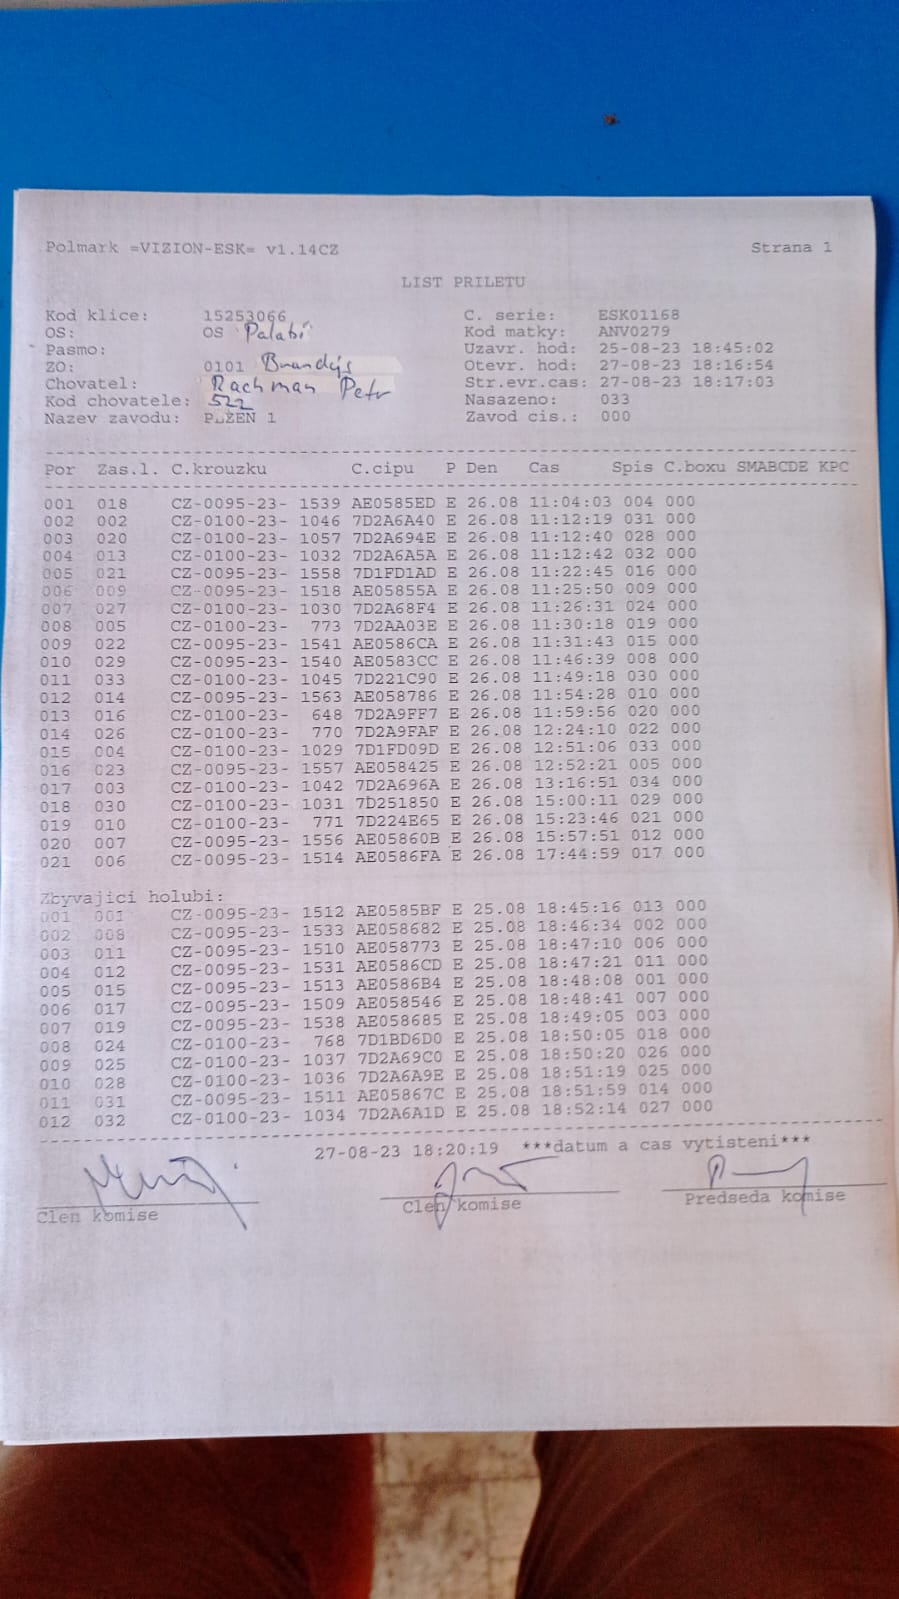 Polmark =VIZION-ESK= v1.14CZ Strana 1
LIST PRILETU
Kod klice: 15253066 C. serie: ESK01168
OS: OS Polabí Kod matky: ANV0279
Pasmo: Uzavr. hod: 25-08-23 18:45:02
ZO: 0101 Brandýs Otevr. hod: 27-08-23 18:16:54
Chovatel: Rachman Petr Str.evr.cas: 27-08-23 18:17:03
Kod chovatele: 522 Nasazeno: 033
Nazev zavodu: PLZEN 1 Zavod cis.: 000
Por Zas.l. C.krouzku C.cipu P Den Cas Spis C.boxu SMABCDE KPC
001 018 CZ-0095-23- 1539 AE0585ED E 26.08 11:04:03 004 000
002 002 CZ-0100-23- 1046 7D2A6A40 E 26.08 11:12:19 031 000
003 020 CZ-0100-23- 1057 7D2A694E E 26.08 11:12:40 028 000
004 013 CZ-0100-23- 1032 7D2A6A5A E 26.08 11:12:42 032 000
005 021 CZ-0095-23- 1558 7D1FD1AD E 26.08 11:22:45 016 000
006 009 CZ-0095-23- 1518 AE05855A E 26.08 11:25:50 009 000
007 027 CZ-0100-23- 1030 7D2A68F4 E 26.08 11:26:31 024 000
008 005 CZ-0100-23- 773 7D2AA03E E 26.08 11:30:18 019 000
009 022 CZ-0095-23- 1541 AE0586CA E 26.08 11:31:43 015 000
010 029 CZ-0095-23- 1540 AE0583CC E 26.08 11:46:39 008 000
011 033 CZ-0100-23- 1045 7D221C90 E 26.08 11:49:18 030 000
012 014 CZ-0095-23- 1563 AE058786 E 26.08 11:54:28 010 000
013 016 CZ-0100-23- 648 7D2A9FF7 E 26.08 11:59:56 020 000
014 026 CZ-0100-23- 770 7D2A9FAF E 26.08 12:24:10 022 000
015 004 CZ-0100-23- 1029 7D1FD09D E 26.08 12:51:06 033 000
016 023 CZ-0095-23- 1557 AE058425 E 26.08 12:52:21 005 000
017 003 CZ-0100-23- 1042 7D2A696A E 26.08 13:16:51 034 000
018 030 CZ-0100-23- 1031 7D251850 E 26.08 15:00:11 029 000
019 010 CZ-0100-23- 771 7D224E65 E 26.08 15:23:46 021 000
020 007 CZ-0095-23- 1556 AE05860B E 26.08 15:57:51 012 000
021 006 CZ-0095-23- 1514 AE0586FA E 26.08 17:44:59 017 000
Zbyvajici holubi:
001 001 CZ-0095-23- 1512 AE0585BF E 25.08 18:45:16 013 000
002 008 CZ-0095-23- 1533 AE058682 E 25.08 18:46:34 002 000
003 011 CZ-0095-23- 1510 AE058773 E 25.08 18:47:10 006 000
004 012 CZ-0095-23- 1531 AE0586CD E 25.08 18:47:21 011 000
005 015 CZ-0095-23- 1513 AE0586B4 E 25.08 18:48:08 001 000
006 017 CZ-0095-23- 1509 AE058546 E 25.08 18:48:41 007 000
007 019 CZ-0095-23- 1538 AE058685 E 25.08 18:49:05 003 000
008 024 CZ-0100-23- 768 7D1BD6D0 E 25.08 18:50:05 018 000
009 025 CZ-0100-23- 1037 7D2A69C0 E 25.08 18:50:20 026 000
010 028 CZ-0100-23- 1036 7D2A6A9E E 25.08 18:51:19 025 000
011 031 CZ-0095-23- 1511 AE05867C E 25.08 18:51:59 014 000
012 032 CZ-0100-23- 1034 7D2A6A1D E 25.08 18:52:14 027 000
27-08-23 18:20:19 ***datum a cas vytisteni***
Clen komise Clen komise Predseda komise